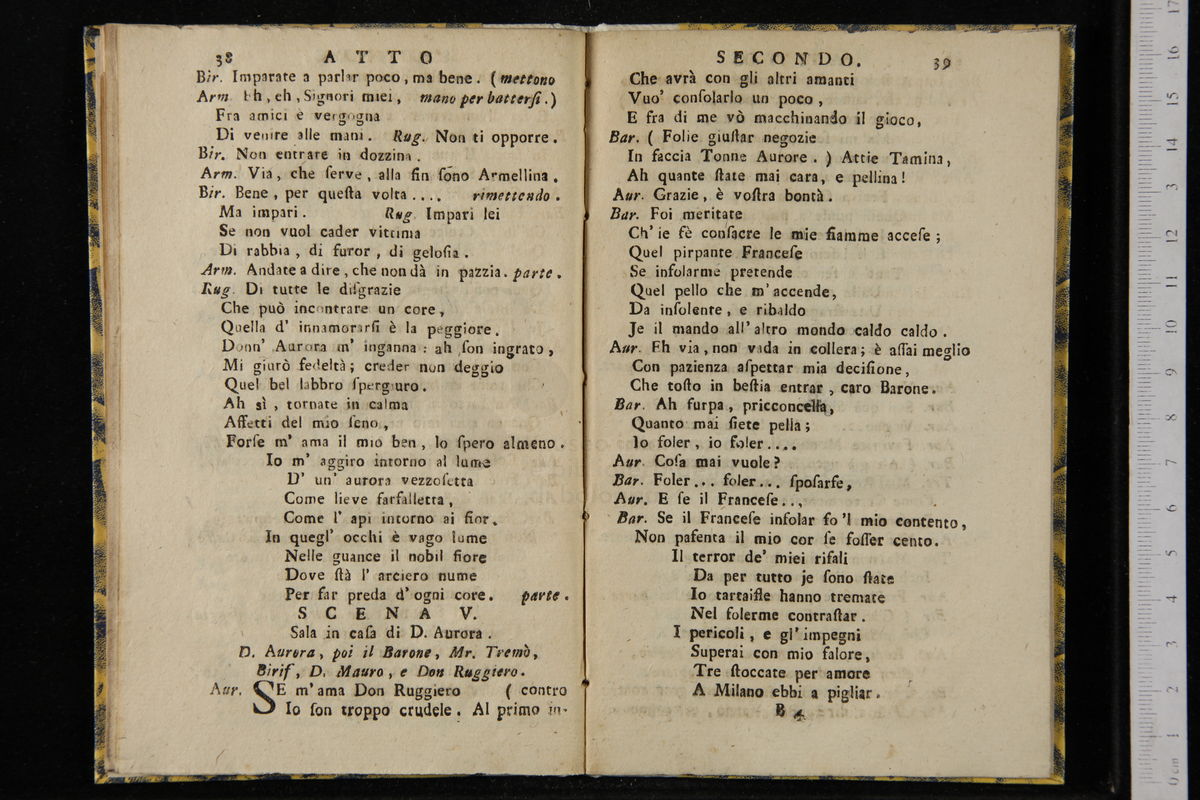 38 ATTO
Bir. Imparate a parlar poco, ma bene. (mettono
Arm. Eh, eh, Signori miei, mano per batterſi.)
Fra amici è vergogna
Di venire alle mani. Rug. Non ti opporre.
Bir. Non entrare in dozzina.
Arm. Via, che ſerve, alla fin ſono Armellina.
Bir. Bene, per queſta volta.... rimettendo.
Ma impari. Rug. Impari lei
Se non vuol cader vittima
Di rabbia, di furor, di geloſia.
Arm. Andate a dire, che non dà in pazzia. parte.
Rug. Di tutte le diſgrazie
Che può incontrare un core,
Quella d' innamorarſi è la peggiore.
Donn' Aurora m' inganna: ah ſon ingrato,
Mi giurò fedeltà; creder non deggio
Quel bel labbro ſpergiuro.
Ah sì, tornate in calma
Affetti del mio ſeno,
Forſe m' ama il mio ben, lo ſpero almeno.
Io m' aggiro intorno al lume
D' un' aurora vezzoſetta
Come lieve farfalletta,
Come l' api intorno ai fior.
In quegl' occhi è vago lume
Nelle guance il nobil fiore
Dove ſtà l' arciero nume
Per far preda d' ogni core. parte.
SCENA V.
Sala in caſa di D. Aurora.
D. Aurora, poi il Barone, Mr. Tremò,
Birif, D. Mauro, e Don Ruggiero.
Aur. SE m'ama Don Ruggiero (contro
Io ſon troppo crudele. Al primo in-
SECONDO. 39
Che avrà con gli altri amanti
Vuo' conſolarlo un poco,
E fra di me vò macchinando il gioco,
Bar. (Folie giuſtar negozie
In faccia Tonne Aurore.) Attie Tamina,
Ah quante ſtate mai cara, e pellina!
Aur. Grazie, è voſtra bontà.
Bar. Foi meritate
Ch' ie fè conſacre le mie fiamme acceſe;
Quel pirpante Franceſe
Se inſolarme pretende
Quel pello che m'accende,
Da inſolente, e ribaldo
Je il mando all'altro mondo caldo caldo.
Aur. Eh via, non vada in collera; è aſſai meglio
Con pazienza aſpettar mia deciſione,
Che toſto in beſtia entrar, caro Barone.
Bar. Ah furpa, pricconcella,
Quanto mai ſiete pella;
Io foler, io foler....
Aur. Coſa mai vuole?
Bar. Foler... foler... ſpoſarſe,
Aur. E ſe il Franceſe...
Bar. Se il Franceſe inſolar fo'l mio contento,
Non paſenta il mio cor ſe foſſer cento.
Il terror de' miei rifali
Da per tutto je ſono ſtate
Io tartaifle hanno tremate
Nel folerme contraſtar.
I pericoli, e gl'impegni
Superai con mio falore,
Tre ſtoccate per amore
A Milano ebbi a pigliar.
B 4